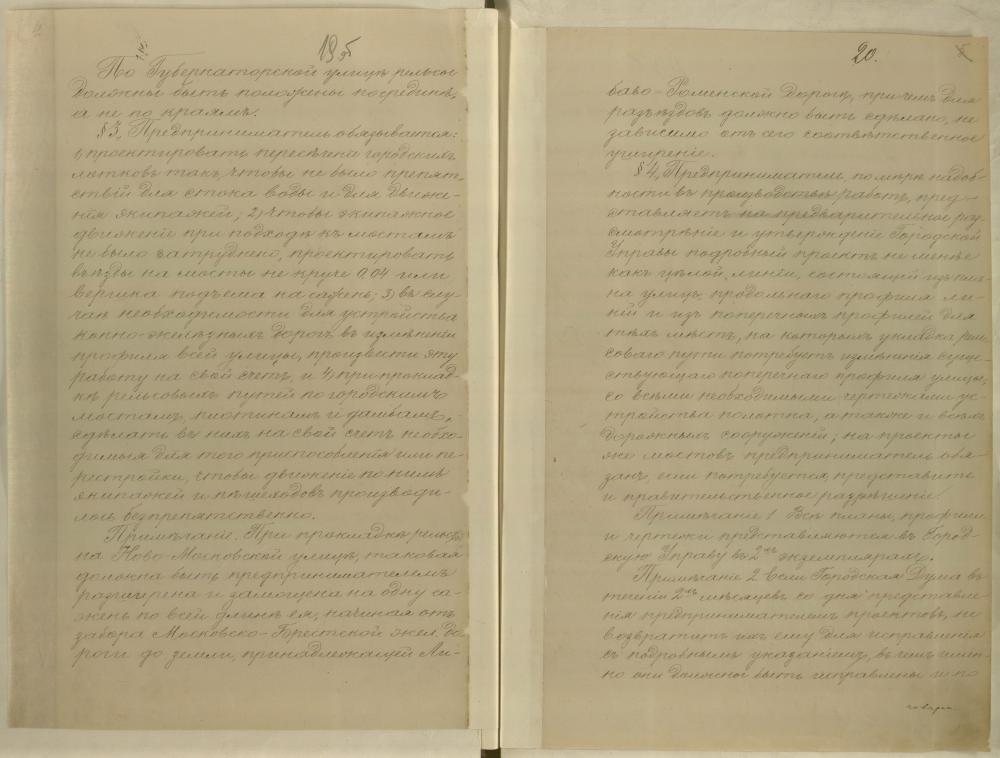 19
По Губернаторской улицѣ рельсы
должны быть положены посрединѣ,
а не по краямъ.
§ 3, Предприниматель обязывается:
1, проектировать пересѣченія городскихъ
лотковъ такъ, чтобы не было препят-
ствій для стока воды и для движе-
нія экипажей; 2, чтобы экипажное
движеніе при подходѣ къ мостамъ
не было затруднено, проектировать
въѣзды на мосты не круче 0,04 или
вершка подъема на сажень; 3) въ слу-
чаѣ необходимости для устройства
конно-желѣзныхъ дорогъ въ измѣненіи
профиля всей улицы, произвести эту
работу на свой счетъ, и 4, при проклад-
кѣ рельсовыхъ путей по городскимъ
мостамъ, плотинамъ и дамбамъ,
сдѣлать въ нихъ на свой счетъ необхо-
димыя для того приспособленія или пе-
рестройки, чтобы движеніе по нимъ
экипажей и пѣшеходовъ производи-
лось безпрепятственно.
Примѣчаніе. При прокладкѣ рельсъ
на Ново-Московской улицѣ, таковая
должна быть предпринимателемъ
разширена и замощена на одну са-
жень по всей длинѣ ея, начиная отъ
забора Московско-Брестской жел. до-
роги до земли, принадлежащей Ли-
20.
баво-Роменской дорогѣ, при чемъ для
разъѣздовъ должно быть сдѣлано, не
зависимо отъ сего соотвѣтственное
уширеніе.
§ 4, Предприниматель, по мѣрѣ надоб-
ности въ производствѣ работъ, пред-
ставляетъ на предварительное раз-
смотрѣніе и утвержденіе Городской
Управы подробный проэктъ не менѣе
какъ цѣлой линіи, состоящей изъ пла-
на улицъ, продольнаго профиля ли-
ніи и изъ поперечныхъ профилей для
тѣхъ мѣстъ, на которыхъ укладка рель-
соваго пути потребуетъ измѣненія суще-
ствующаго поперечнаго профиля улицы,
со всѣми необходимыми чертежами ус-
тройства полотна, а также и всѣхъ
дорожныхъ сооруженій; на проекты
же мостовъ предприниматель обя-
занъ, если потребуется представить
и правительственное разрѣшеніе.
Примѣчаніе 1 Всѣ планы, профили
и чертежи представляются въ Город-
скую Управу въ 2хъ экземплярахъ.
Примѣчаніе 2. Если Городская Дума въ
теченіи 2хъ мѣсяцевъ со дня представле-
нія предпринимателемъ проектовъ, не
возвратитъ ихъ ему для исправленія
съ подробнымъ указаніемъ, въ чемъ имен-
но они должны быть исправлены и по